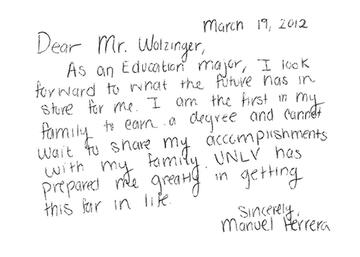 March 19, 2012
Dear Mr. Wolzinger,
As an Education major, I look
forward to what the future has in
store for me. I am the first in my
family to earn a degree and cannot
wait to share my accomplishments
with my family. UNLV has
prepared me greatly in getting
this far in life.
Sincerely,
Manuel Herrera